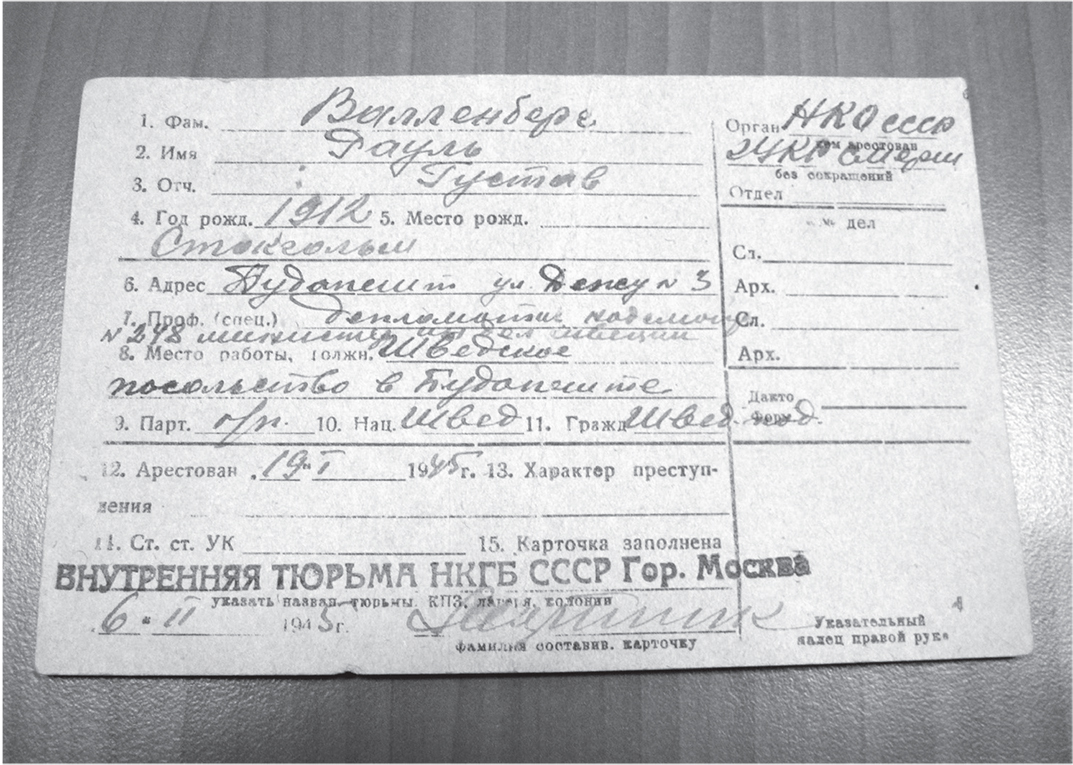 1. Фам. Валленберг
2. Имя Рауль
3. Отч. Густав
4. Год рожд. 1912 5. Место рожд.
Стокгольм
6. Адрес Будапешт ул
7. Проф. (спец.)
N
8. Место работы, должн. Шведское
посольство в Будапеште
9. Парт. б/п. 10. Нац. Швед 11. Гражд. Швед. под.
12. Арестован 19 I 1945 г. 13. Характер преступ-
ления
14. Ст. ст. УК 15. Карточка заполнена
ВНУТРЕННЯЯ ТЮРЬМА НКГБ СССР Гор. Москва
указать назван. тюрьмы, КПЗ, лагеря, колонии
6 " II 1945 г.
фамилия составив. карточку
Орган НКО СССР
кем арестован
ГУКР Смерш
без сокращений
Отдел
№№ дел
Сл.
Арх.
Сл.
Арх.
Дакто
форм.
Указательный
палец правой руки